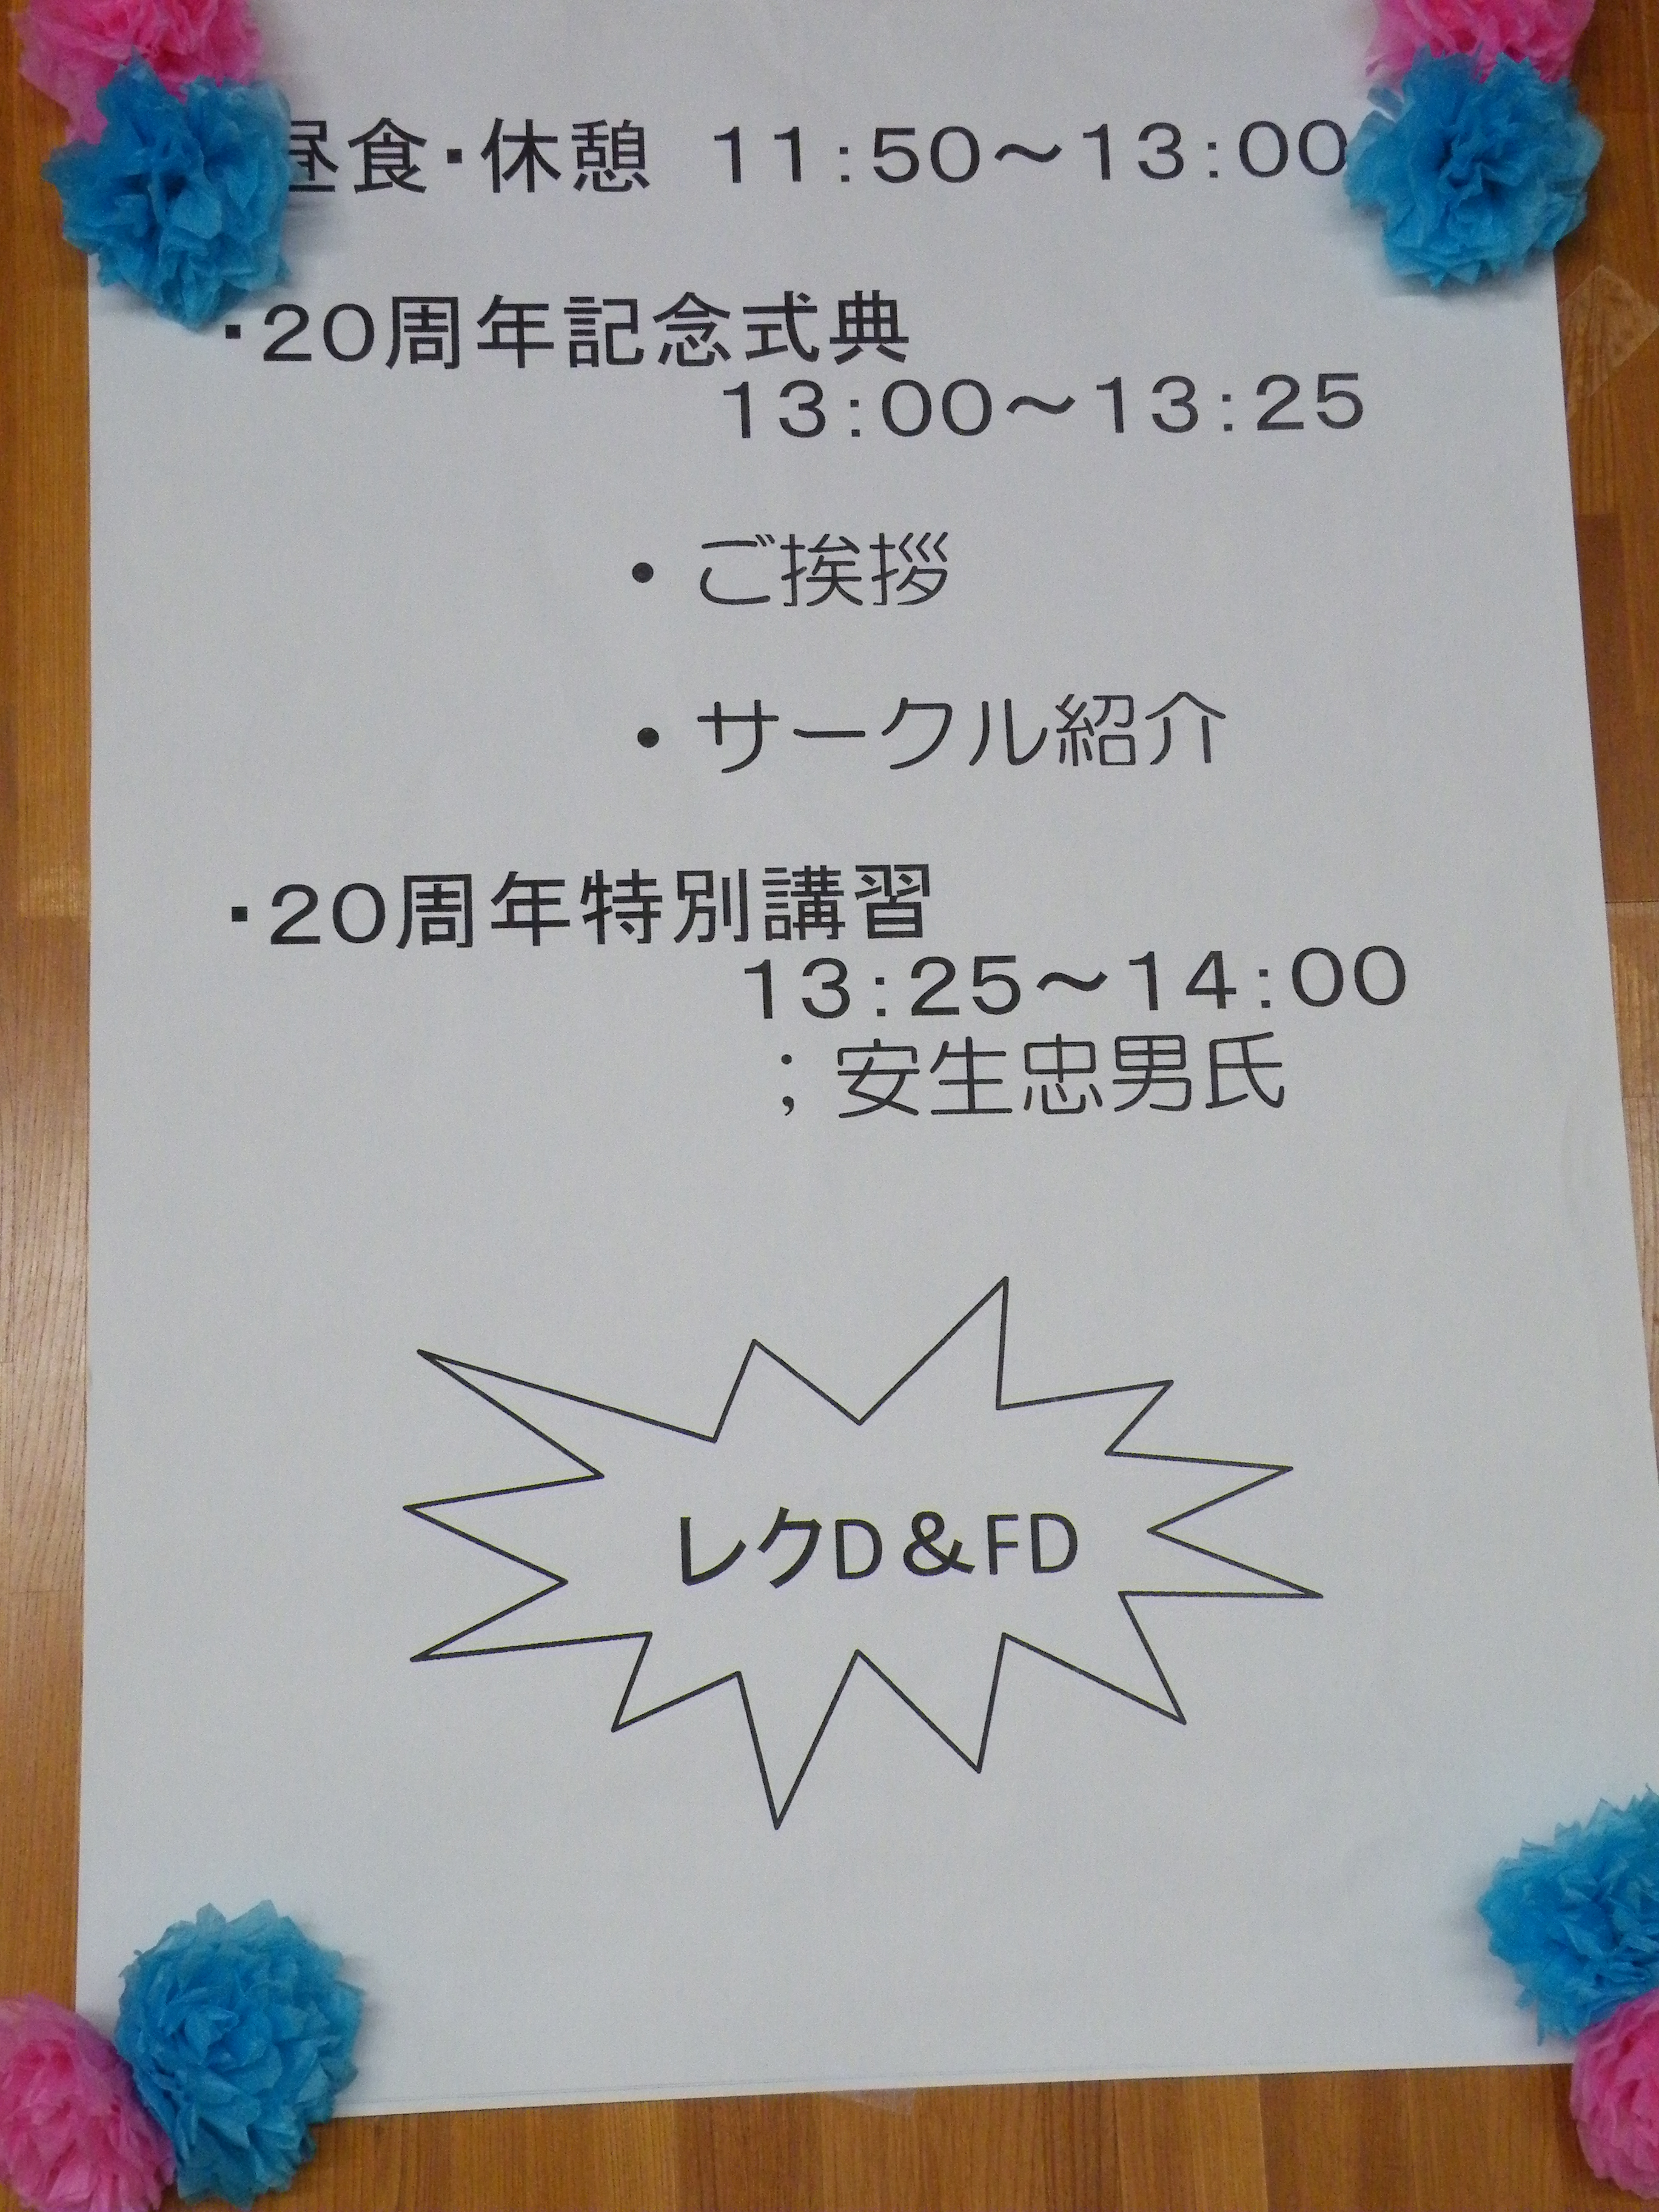 昼食・休憩　11:50～13:00
・20周年記念式典
13:00～13:25
・ご挨拶
・サークル紹介
・20周年特別講習
13:25～14:00
；安生忠男氏
レクD＆FD